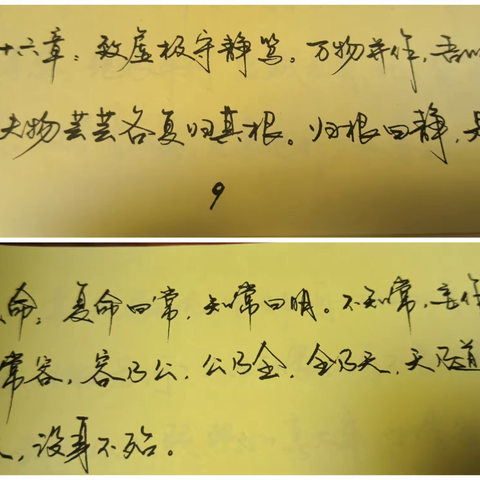 十六章：致虚极守静笃。万物并作，吾以
夫物芸芸各复归其根。归根曰静，是
9
命；复命曰常，知常曰明。不知常，妄作
常容，容乃公，公乃全，全乃天，天乃道
，没身不殆。